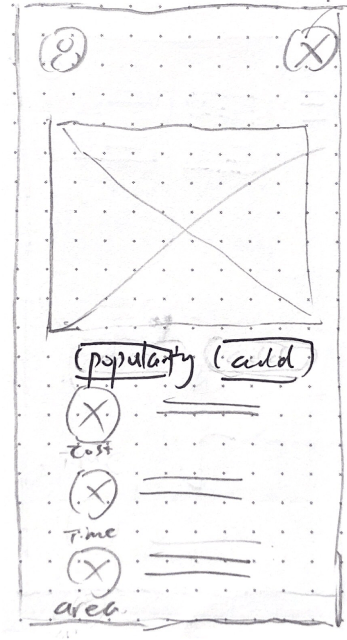 popularity add
Cost
Time
area